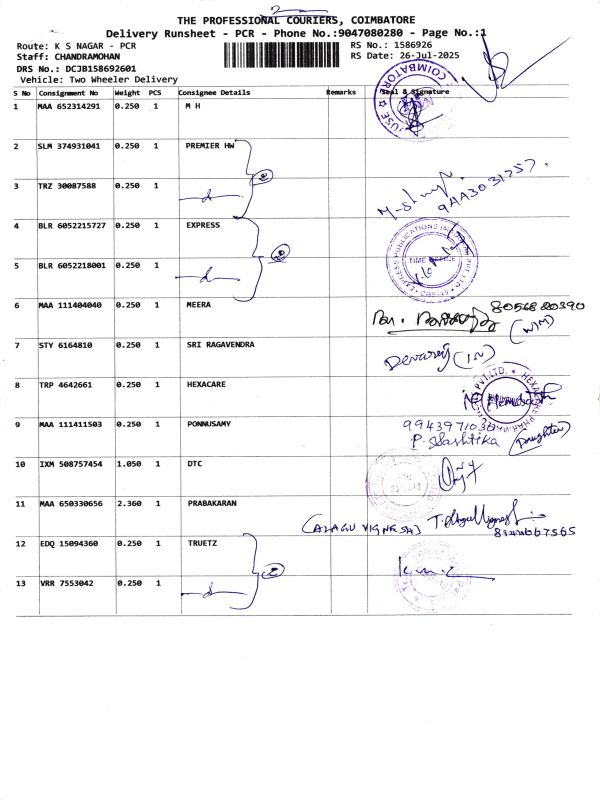 2
THE PROFESSIONAL COURIERS, COIMBATORE
Delivery Runsheet - PCR - Phone No.:9047080280 - Page No.:1
Route: K S NAGAR - PCR
RS No.: 1586926
Staff: CHANDRAMOHAN
RS Date: 26-Jul-2025
DRS No.: DCJB158692601
Vehicle: Two Wheeler Delivery
S No Consignment No Weight PCS Consignee Details Remarks Seal & Signature
1 MAA 652314291 0.250 1 M H
COIMBATORE
2 SLM 374931041 0.250 1 PREMIER HW
3 TRZ 30087588 0.250 1
4 BLR 6052215727 0.250 1 EXPRESS
TIME OFFICE
5 BLR 6052218001 0.250 1
6 MAA 111404040 0.250 1 MEERA 8056820390
7 STY 6164810 0.250 1 SRI RAGAVENDRA
Devaraj (IN)
8 TRP 4642661 0.250 1 HEXACARE
9 MAA 111411503 0.250 1 PONNUSAMY
P. Shashtika (Daughter)
10 IXM 508757454 1.050 1 DTC
11 MAA 650330656 2.360 1 PRABAKARAN
(ALAGU VIGNESH)
12 EDQ 15094360 0.250 1 TRUETZ
13 VRR 7553042 0.250 1